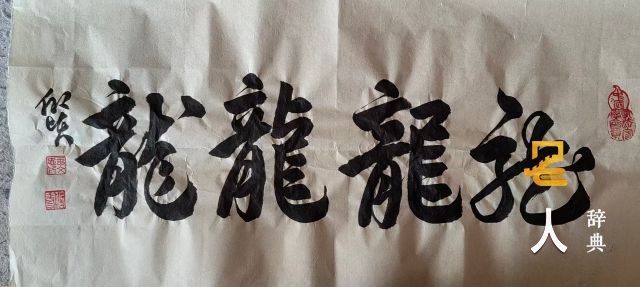 龍龍龍龍
人
辞典